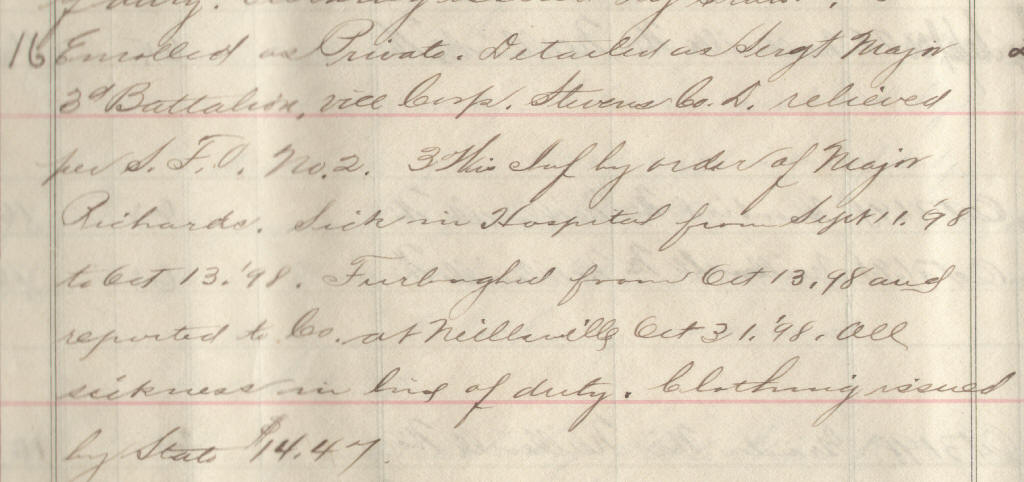 Clothing issued by State.
16 Enrolled as Private. Detailed as Sergt Major
3d Battalion, vice Corp. Stevens Co. D. relieved
per S. F. O. No. 2. 3 Wis Inf by order of Major
Richards. Sick in Hospital from Sept 11. '98
to Oct 13. '98. Furloughed from Oct 13, 98 and
reported to Co. at Neillsville Oct 31. '98. All
sickness in line of duty. Clothing issued
by State $14.47.